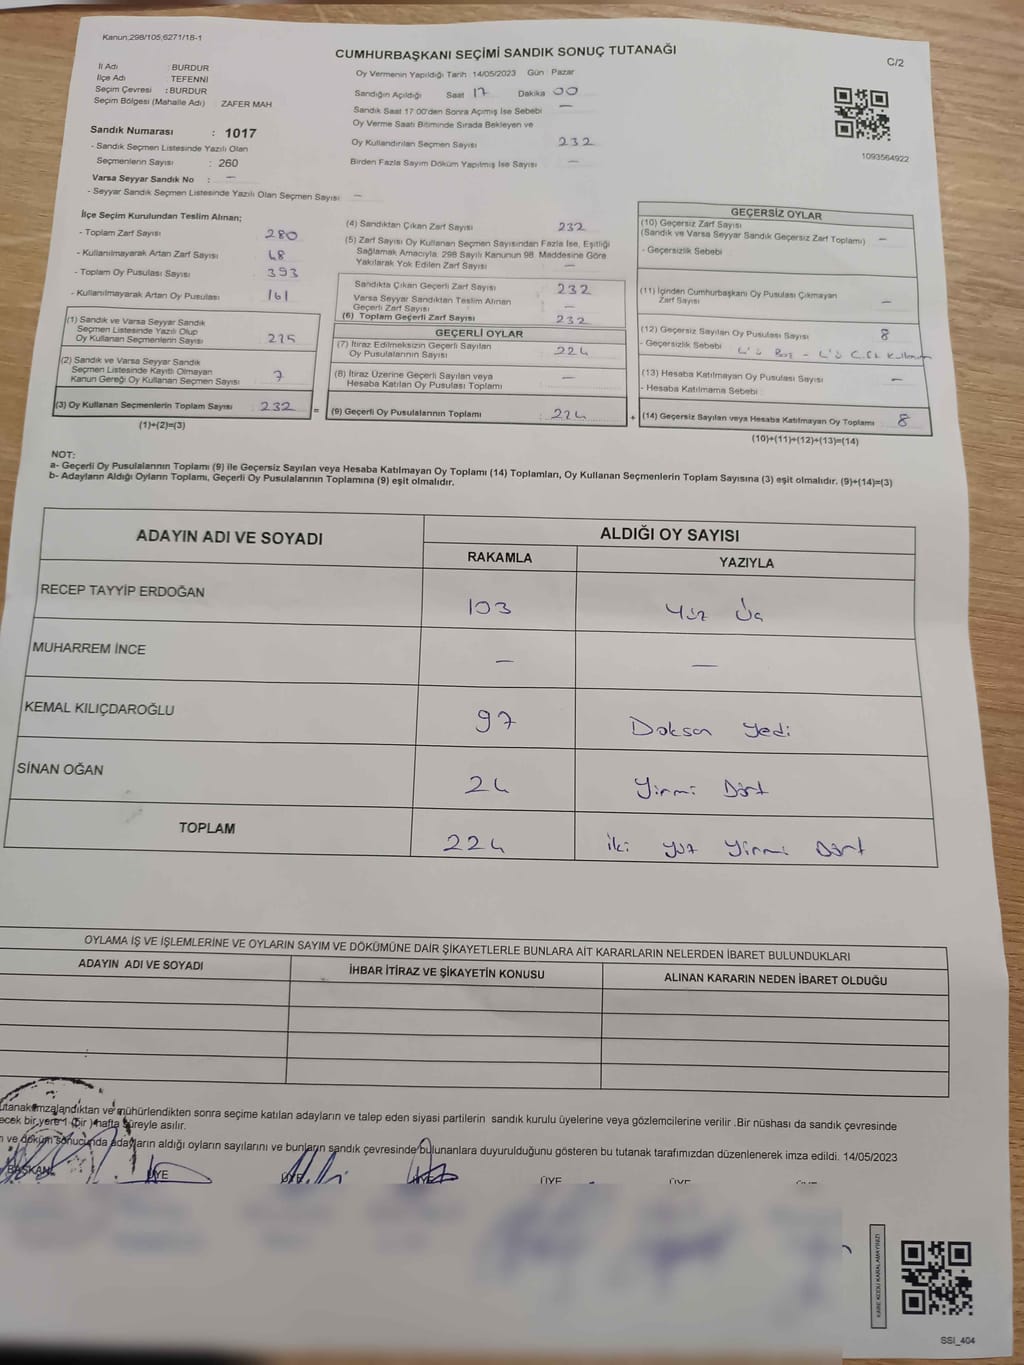 Kanun,298/105,6271/18-1
CUMHURBAŞKANI SEÇİMİ SANDIK SONUÇ TUTANAĞI
C/2
İl Adı : BURDUR
İlçe Adı : TEFENNİ
Seçim Çevresi : BURDUR
Seçim Bölgesi (Mahalle Adı) : ZAFER MAH
Sandık Numarası : 1017
- Sandık Seçmen Listesinde Yazılı Olan
Seçmenlerin Sayısı : 260
Varsa Seyyar Sandık No : —
- Seyyar Sandık Seçmen Listesinde Yazılı Olan Seçmen Sayısı : —
Oy Vermenin Yapıldığı Tarih : 14/05/2023 Gün : Pazar
Sandığın Açıldığı Saat 17 Dakika 00
Sandık Saat 17:00'den Sonra Açımış İse Sebebi —
Oy Verme Saati Bitiminde Sırada Bekleyen ve
Oy Kullandırılan Seçmen Sayısı 232
Birden Fazla Sayım Döküm Yapılmış İse Sayısı —
1093564922
İlçe Seçim Kurulundan Teslim Alınan;
- Toplam Zarf Sayısı 280
- Kullanılmayarak Artan Zarf Sayısı 48
- Toplam Oy Pusulası Sayısı 393
- Kullanılmayarak Artan Oy Pusulası 161
(1) Sandık ve Varsa Seyyar Sandık
Seçmen Listesinde Yazılı Olup
Oy Kullanan Seçmenlerin Sayısı 225
(2) Sandık ve Varsa Seyyar Sandık
Seçmen Listesinde Kayıtlı Olmayan
Kanun Gereği Oy Kullanan Seçmen Sayısı 7
(3) Oy Kullanan Seçmenlerin Toplam Sayısı 232 =
(1)+(2)=(3)
(4) Sandıktan Çıkan Zarf Sayısı 232
(5) Zarf Sayısı Oy Kullanan Seçmen Sayısından Fazla İse, Eşitliği
Sağlamak Amacıyla: 298 Sayılı Kanunun 98. Maddesine Göre
Yakılarak Yok Edilen Zarf Sayısı —
Sandıkta Çıkan Geçerli Zarf Sayısı 232
Varsa Seyyar Sandıktan Teslim Alınan
Geçerli Zarf Sayısı —
(6) Toplam Geçerli Zarf Sayısı 232
GEÇERLİ OYLAR
(7) İtiraz Edilmeksizin Geçerli Sayılan
Oy Pusulalarının Sayısı 224
(8) İtiraz Üzerine Geçerli Sayılan veya
Hesaba Katılan Oy Pusulası Toplamı —
(9) Geçerli Oy Pusulalarının Toplamı : 224 +
GEÇERSİZ OYLAR
(10) Geçersiz Zarf Sayısı
(Sandık ve Varsa Seyyar Sandık Geçersiz Zarf Toplamı) —
- Geçersizlik Sebebi :
(11) İçinden Cumhurbaşkanı Oy Pusulası Çıkmayan
Zarf Sayısı —
(12) Geçersiz Sayılan Oy Pusulası Sayısı 8
- Geçersizlik Sebebi : 4'ü Boş - 4'ü Çift
(13) Hesaba Katılmayan Oy Pusulası Sayısı —
- Hesaba Katılmama Sebebi :
(14) Geçersiz Sayılan veya Hesaba Katılmayan Oy Toplamı 8
(10)+(11)+(12)+(13)=(14)
NOT:
a- Geçerli Oy Pusulalarının Toplamı (9) ile Geçersiz Sayılan veya Hesaba Katılmayan Oy Toplamı (14) Toplamları, Oy Kullanan Seçmenlerin Toplam Sayısına (3) eşit olmalıdır. (9)+(14)=(3)
b- Adayların Aldığı Oyların Toplamı, Geçerli Oy Pusulalarının Toplamına (9) eşit olmalıdır.
ADAYIN ADI VE SOYADI ALDIĞI OY SAYISI
RAKAMLA YAZIYLA
RECEP TAYYİP ERDOĞAN 103 Yüz Üç
MUHARREM İNCE — —
KEMAL KILIÇDAROĞLU 97 Doksan Yedi
SİNAN OĞAN 24 Yirmi Dört
TOPLAM 224 İki Yüz Yirmi Dört
OYLAMA İŞ VE İŞLEMLERİNE VE OYLARIN SAYIM VE DÖKÜMÜNE DAİR ŞİKAYETLERLE BUNLARA AİT KARARLARIN NELERDEN İBARET BULUNDUKLARI
ADAYIN ADI VE SOYADI İHBAR İTİRAZ VE ŞİKAYETİN KONUSU ALINAN KARARIN NEDEN İBARET OLDUĞU
utanak imzalandıktan ve mühürlendikten sonra seçime katılan adayların ve talep eden siyasi partilerin sandık kurulu üyelerine veya gözlemcilerine verilir .Bir nüshası da sandık çevresinde
ecek bir yere 1 (bir ) hafta süreyle asılır.
n ve döküm sonucunda adayların aldığı oyların sayılarını ve bunların sandık çevresinde bulunanlara duyurulduğunu gösteren bu tutanak tarafımızdan düzenlenerek imza edildi. 14/05/2023
BAŞKAN ÜYE ÜYE ÜYE ÜYE ÜYE
KARE KODU KARALAMAYINIZ!
SSI_404